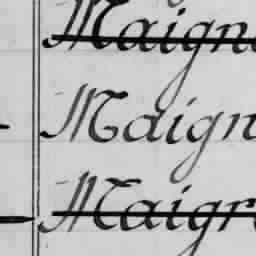 Maign
Maign
Maigr